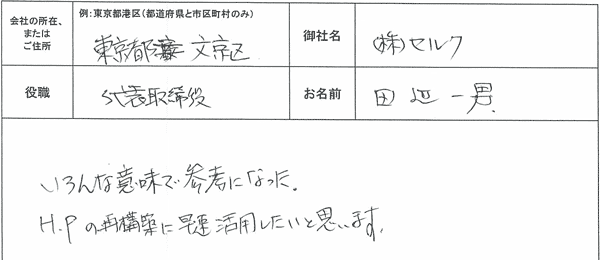 会社の所在、
または
ご住所
例:東京都港区(都道府県と市区町村のみ)
東京都 文京区
御社名
(株)セルク
役職
代表取締役
お名前
田辺一男
いろんな意味で参考になった。
H.Pの再構築に早速活用したいと思います。